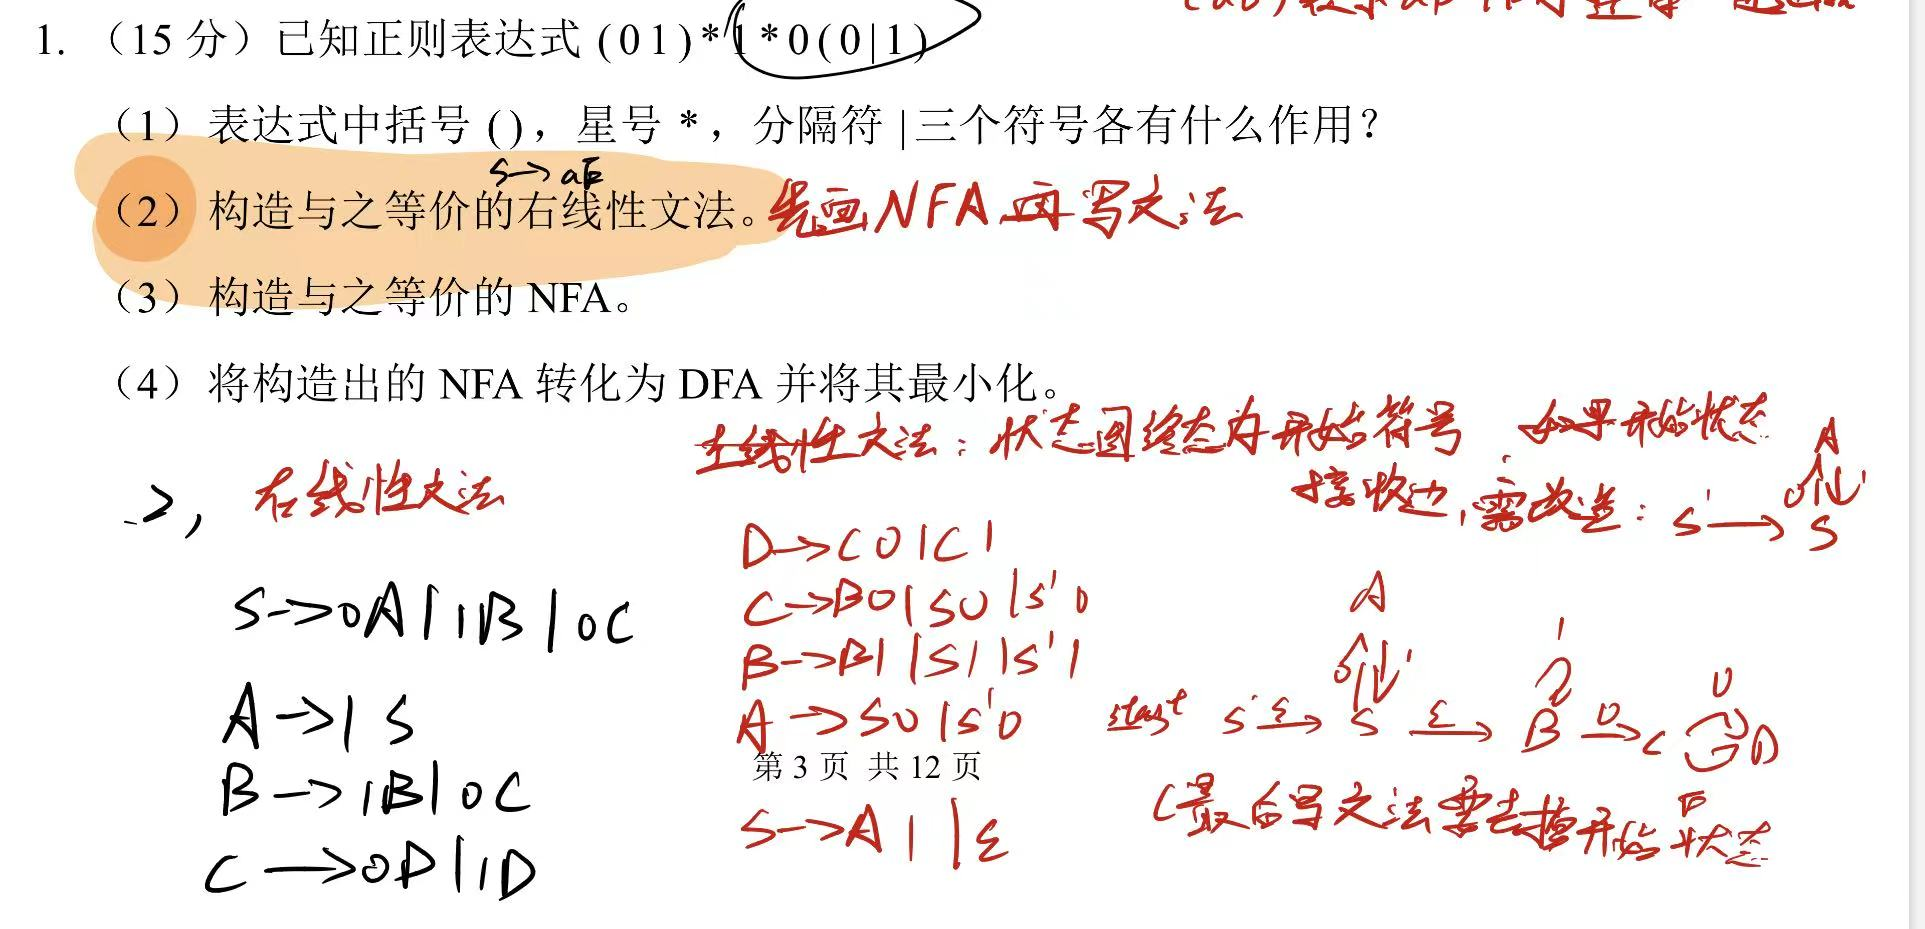 1. （15 分）已知正则表达式 (0 1)*1*0(0|1)
（1）表达式中括号 ()，星号 *，分隔符 |三个符号各有什么作用？
S→aF
（2）构造与之等价的右线性文法。先画NFA再写文法
（3）构造与之等价的 NFA。
（4）将构造出的 NFA 转化为 DFA 并将其最小化。
左线性文法：状态图终态为开始符号，如果开始状态
接收边，需改造：S'→S
A
0 1
2, 右线性文法
S→0A|1B|0C
A→1S
B→1B|0C
C→0D|1D
D→C0|C1
C→B0|S0|S'0
B→B1|S1|S'1
A→S0|S'0
S→A1|ε
A
0 1
1
0
start S' ε→ S ε→ B 0→ C D
第 3 页 共 12 页
(最后写文法要去掉开始状态